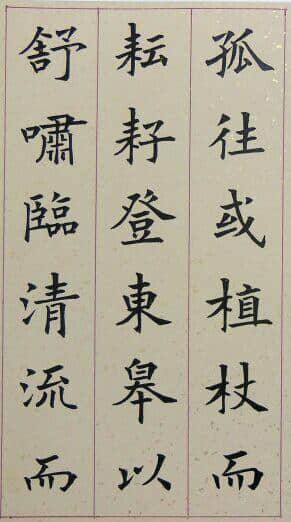 孤往或植杖而
耘耔登東皋以
舒嘯臨清流而